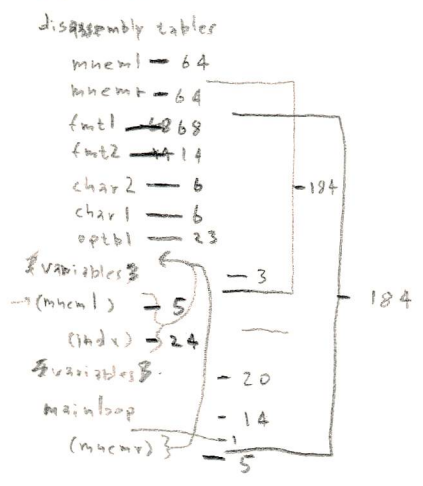 disassembly tables
mneml — 64
mnemr — 64
fmt1 — 68
fmt2 — 14
char2 — 6
char1 — 6
optbl — 23
{variables}
— 3
→ (mneml) — 5
(indx) — 24
{variables}
— 20
mainloop — 14
1
(mnemr)}
— 5
—184
— 184